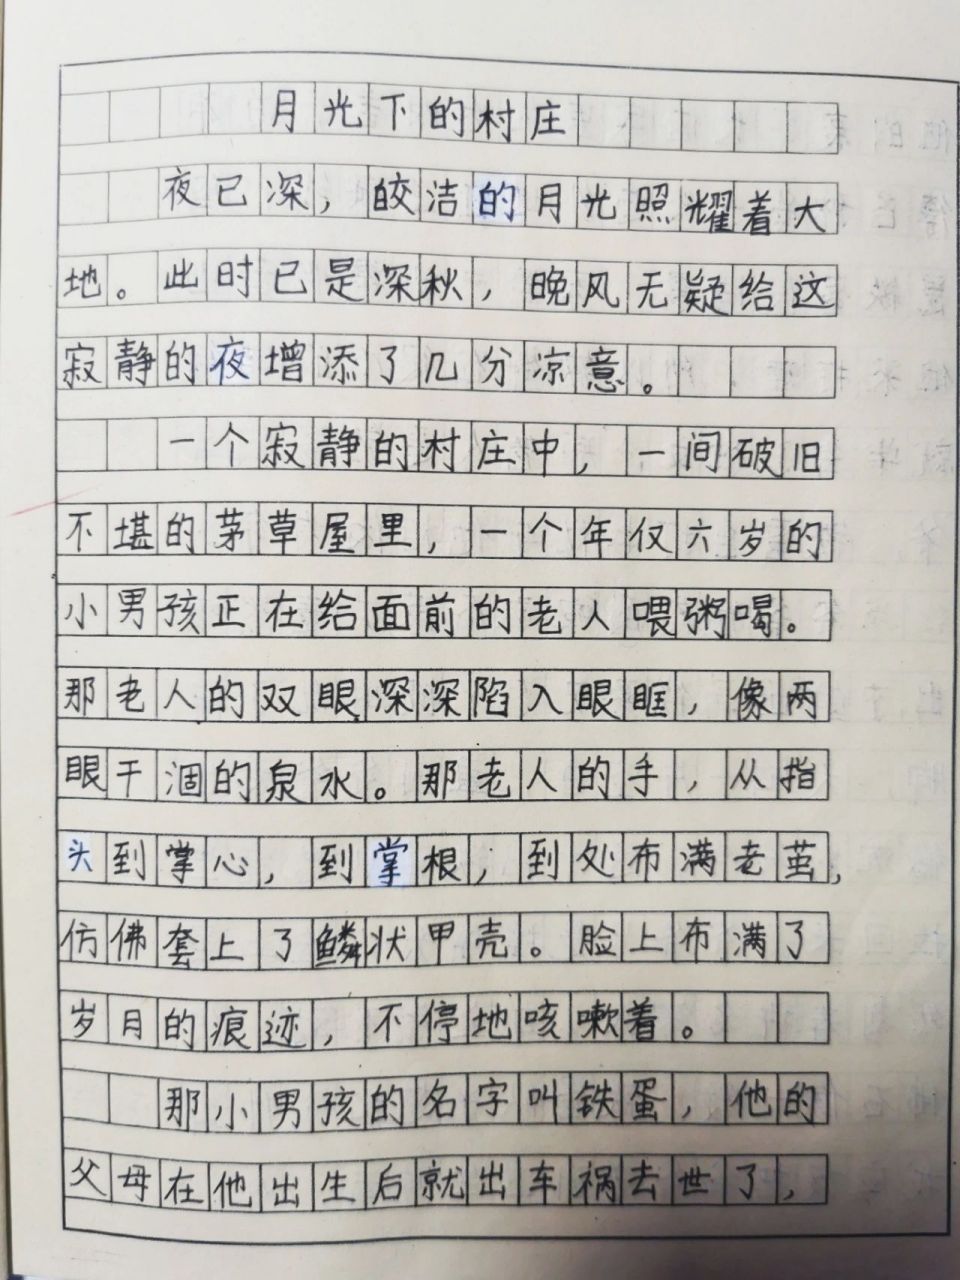 月光下的村庄
夜已深，皎洁的月光照耀着大
地。此时已是深秋，晚风无疑给这
寂静的夜增添了几分凉意。
一个寂静的村庄中，一间破旧
不堪的茅草屋里，一个年仅六岁的
小男孩正在给面前的老人喂粥喝。
那老人的双眼深深陷入眼眶，像两
眼干涸的泉水。那老人的手，从指
头到掌心，到掌根，到处布满老茧，
仿佛套上了鳞状甲壳。脸上布满了
岁月的痕迹，不停地咳嗽着。
那小男孩的名字叫铁蛋，他的
父母在他出生后就出车祸去世了，